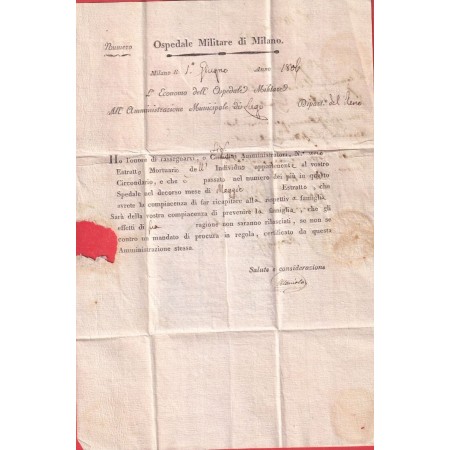 Numero
Ospedale Militare di Milano.
Milano li 1.° Giugno Anno 1806
L'Economo dell'Ospedale Militare
All'Amministrazione Municipale di Lugo Dipart.° del Reno
Ho l'onore di , o Cittadini Amministratori, N.° uno
Estratto Mortuario dell' Individuo appartenente al vostro
Circondario, e che è passato nel numero dei più in questo
Spedale nel decorso mese di Maggio Estratto, che
avrete la compiacenza di far ricapitare alla rispettiva famiglia.
Sarà della vostra compiacenza di prevenire la famiglia, che gli
effetti di sua ragione non saranno rilasciati, se non se
contro un mandato di procura in regola, certificato da questa
Amministrazione stessa.
Salute e considerazione